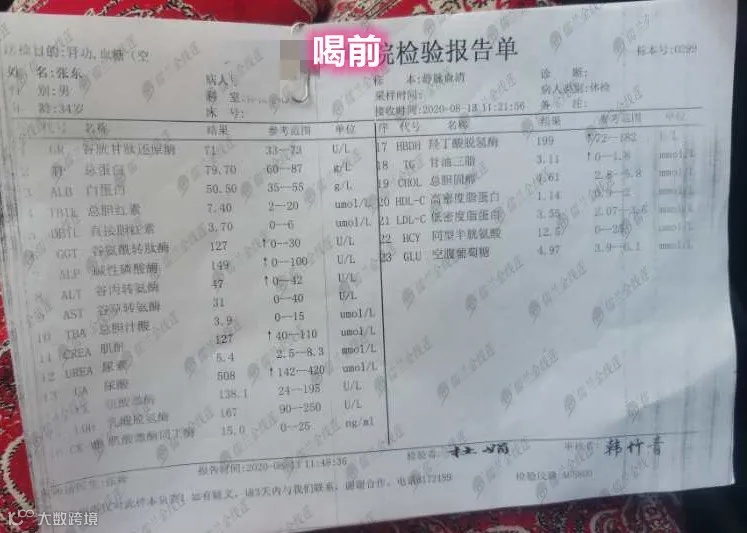 喝前
院检验报告单
标本号:0299
送检目的:肝功,血糖(空
姓 名:张东
病人
标 本:静脉血清
诊 断:
别:男
科 室:
采样时间:
病人类别:体检
龄:34岁
床 号:
接收时间:2020-08-13 11:21:56
备 注:
代号 名称 结果 参考范围 单位
GR 谷胱甘肽还原酶 71 33--73 U/L
2 总蛋白 79.70 60--87 g/L
3 ALB 白蛋白 50.50 35--55 g/L
4 TBIL 总胆红素 7.40 2--20 umol/L
DBIL 直接胆红素 3.70 0--6 umol/L
GGT 谷氨酰转肽酶 127 ↑0--30 U/L
ALP 碱性磷酸酶 149 ↑0--100 U/L
ALT 谷丙转氨酶 47 ↑0--42 U/L
AST 谷草转氨酶 31 0--40 U/L
10 TBA 总胆汁酸 3.9 0--15 umol/L
11 CREA 肌酐 127 ↑40--110 umol/L
12 UREA 尿素 5.4 2.5--8.3 mmol/L
13 UA 尿酸 508 ↑142--420 umol/L
138.1 24--195 U/L
LDH 乳酸脱氢酶 167 90--250 U/L
16 CK-MB 肌酸激酶同工酶 15.0 0--25 ng/ml
序 代号 名称 结果 参考范围 单位
17 HBDH 羟丁酸脱氢酶 199 ↑72--182 U/L
18 TG 甘油三脂 3.11 ↑0--1.8 mmol/L
19 CHOL 总胆固醇 4.61 2.8--5.8 mmol/L
20 HDL-C 高密度脂蛋白 1.14 0.9--2 mmol/L
21 LDL-C 低密度脂蛋白 3.55 2.07--3.6 mmol/L
22 HCY 同型半胱氨酸 12.5 0--20 umol/L
23 GLU 空腹葡萄糖 4.97 3.9--6.1 mmol/L
报告时间:2020-08-13 11:48:36
检验者:
审核者:韩竹青
仅对此样本负责!如有疑义,请3天内与我们联系,谢谢合作。电话8172199
检验仪器:AU5800
儒兰金线莲
大数跨境